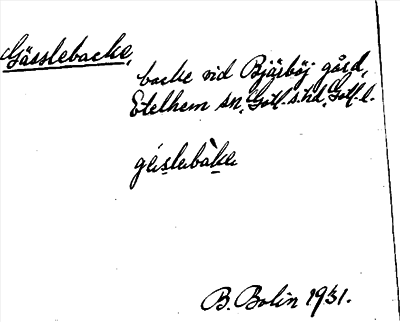 Gässlebacke,
backe vid Bjärböj gård,
Etelhem sn, Gotl. s. hd, Gotl. l.
géslebàke
B. Bolin 1931.